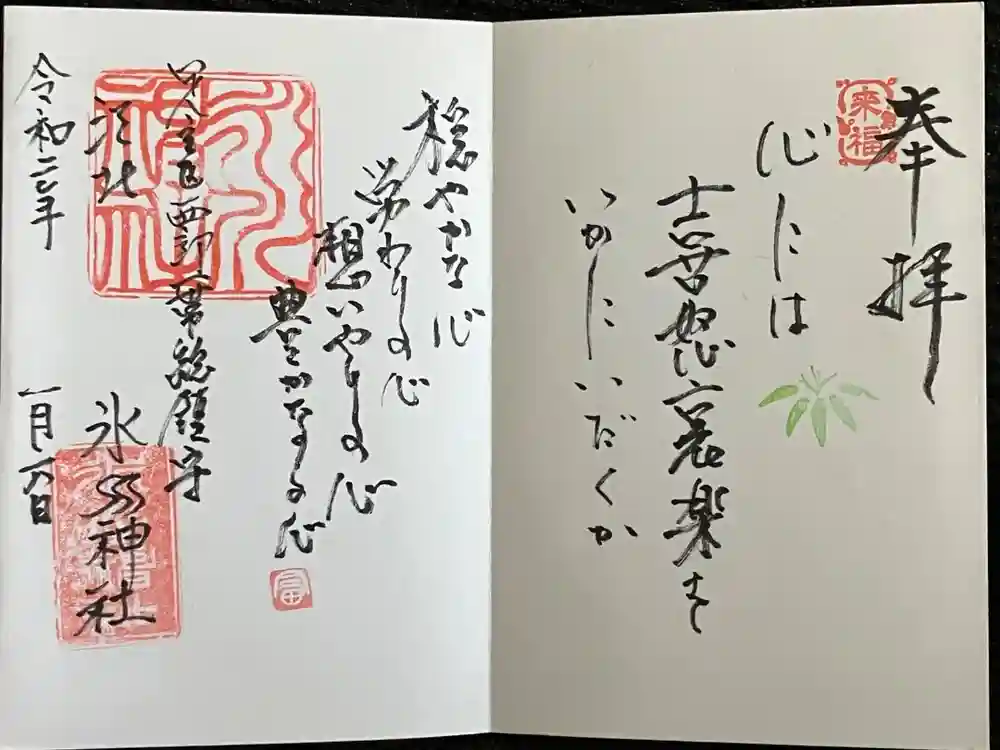 奉拝
來福
心には
喜怒哀楽を
いかにいだくか
穏やかな心
労わりの心
想いやりの心
豊かなる心
足立区西部一帯総鎮守
江北
氷川神社
令和二年
一月